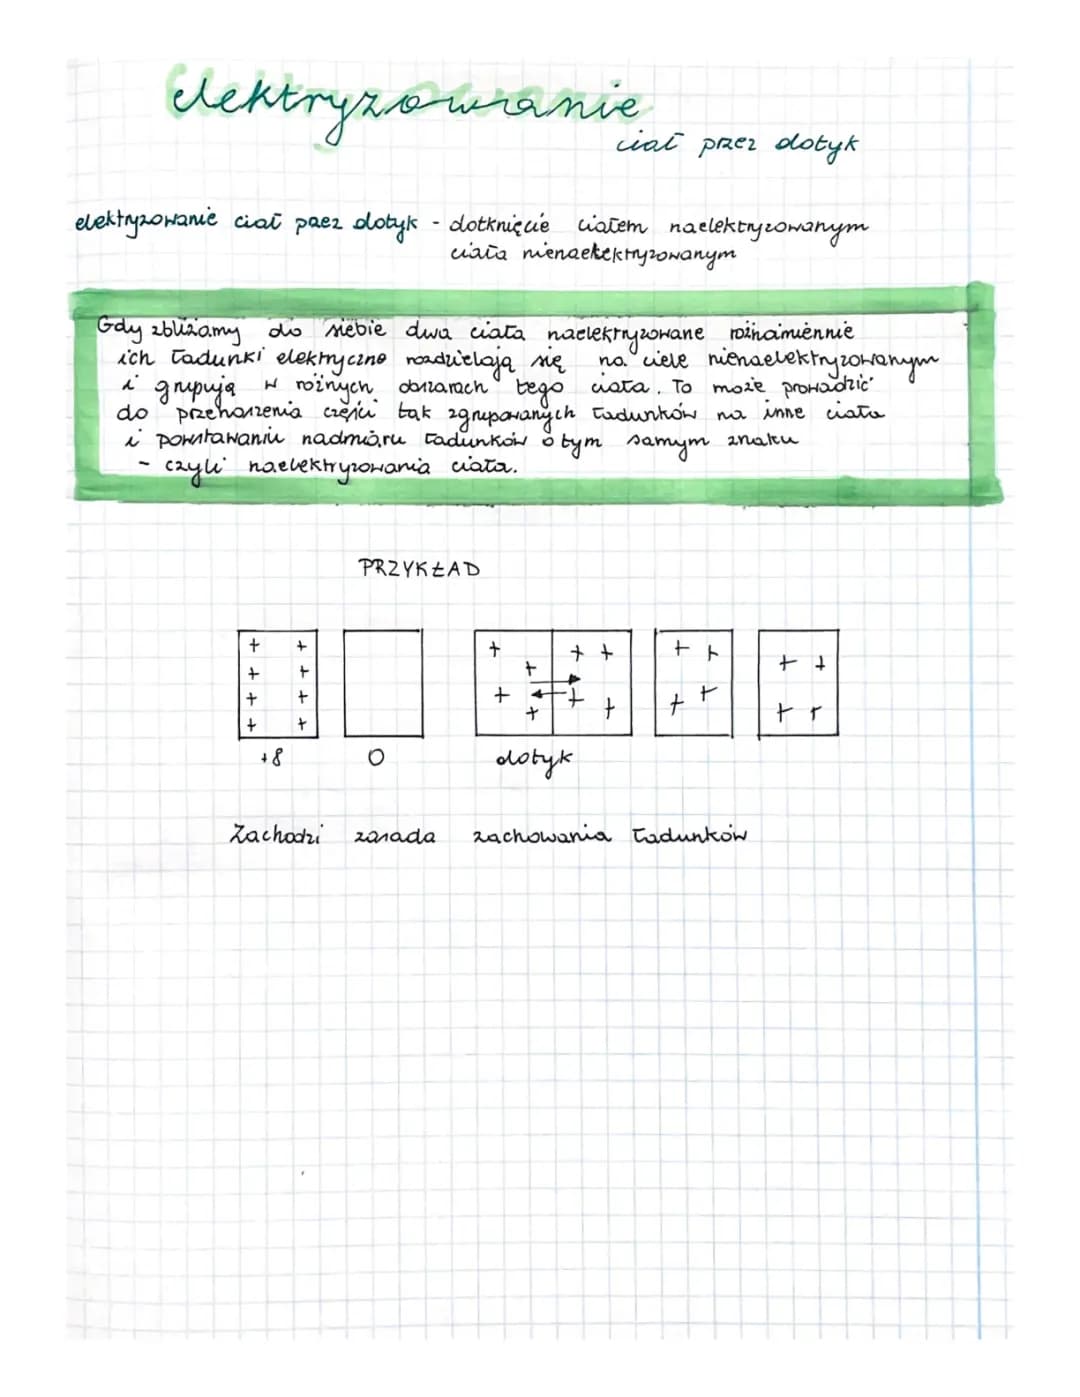 elektryzowanie
ciał przez dotyk
elektryzowanie ciał przez dotyk - dotknięcie ciałem naelektryzowanym
ciała nienaelektryzowanym
Gdy zbliżamy do siebie dwa ciała naelektryzowane różnoimiennie
ich ładunki elektryczne rozdzielają się na ciele nienaelektryzowanym
i grupują w różnych obszarach tego ciała. To może prowadzić
do przenoszenia części tak zgrupowanych ładunków na inne ciała
i powstawaniu nadmiaru ładunków o tym samym znaku
- czyli naelektryzowania ciała.
PRZYKŁAD
+ + + + + + + +
+ + + + + + + +
+ + + +
+ + + +
+8 0 dotyk
Zachodzi zasada zachowania ładunków